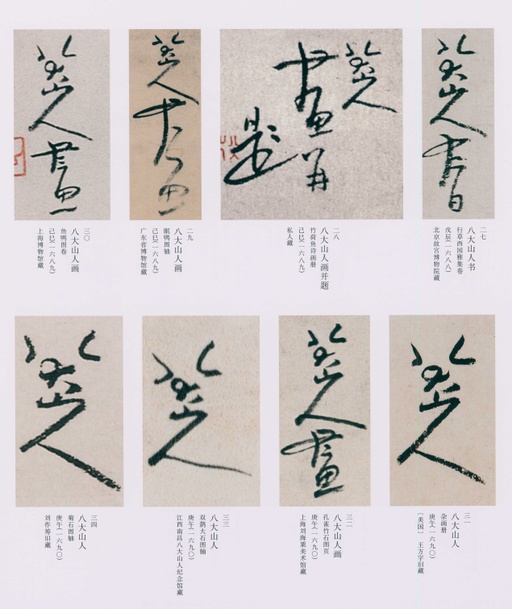 八大山人書
二七
八大山人书
行草西园雅集卷
戊辰(一六八八)
北京故宫博物院藏
八大山人
畫并
題
二八
八大山人画并题
竹荷鱼诗画册
己巳(一六八九)
私人藏
八大山人画
二九
八大山人画
眠鸭图轴
己巳(一六八九)
广东省博物馆藏
八大山人畫
三〇
八大山人画
鱼鸭图卷
己巳(一六八九)
上海博物馆藏
八大山人
三一
八大山人
杂画册
庚午(一六九〇)
[美国] 王方宇旧藏
八大山人畫
三二
八大山人画
孔雀竹石图页
庚午(一六九〇)
上海刘海粟美术馆藏
八大山人
三三
八大山人
双鹊大石图轴
庚午(一六九〇)
江西南昌八大山人纪念馆藏
八大山人
三四
八大山人
菊石图轴
庚午(一六九〇)
刘作筹旧藏